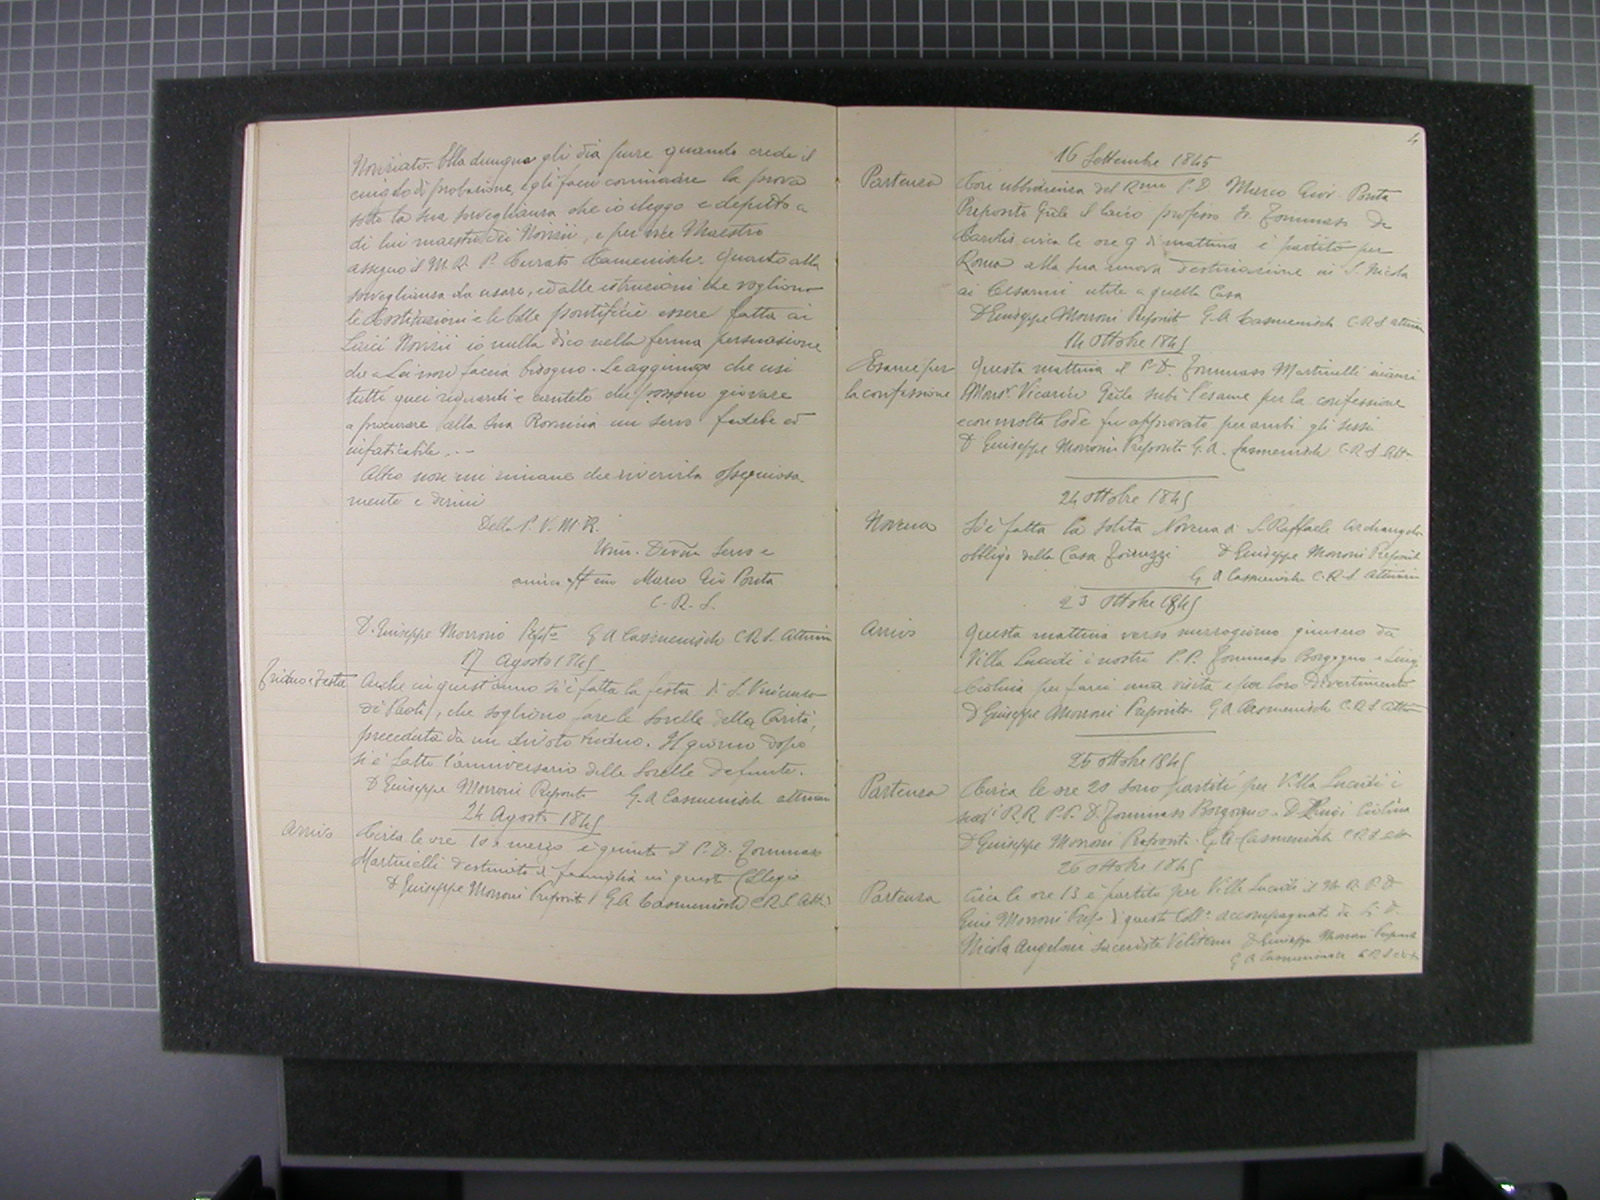 Noviziato. Ella dunque gli dia pure quando crede il
cingolo di probazione, e gli facci cominciare la prova
sotto la sua sorveglianza che io eleggo e deputo a
di lui maestro dei Novizii, e per vice Maestro
assegno il M. R. P. Curato Casmenisch. Quanto alla
sorveglianza da usare, ed alle istruzioni che vogliono
le Costituzioni e le bolle pontificie essere fatta ai
Laici Novizii io nulla dico nella ferma persuasione
che a Lei non faccia bisogno. Le aggiungo che usi
tutti quei riguardi e cautele che possono giovare
a procurare alla Sua Romina un servo fedele ed
infaticabile. --
Altro non mi rimane che riverirla ossequiosa
mente e dirmi
Della P. V. M. R.
Umi. Devmo Servo e
amico aff mo Marco Gio Ponta
C. R. S.
D. Giuseppe Morroni Pepto G A Casmenisch C R S. Attuario
17 Agosto 1845
Triduo e Festa
Anche in quest'anno si è fatta la festa di S. Vincenzo
di Paoli, che sogliono fare le Sorelle della Carità,
preceduta da un divoto triduo. Il giorno dopo
si è fatto l'anniversario delle Sorelle Defunte.
D Giuseppe Morroni Preposito G. A Casmenisch attuario
24 Agosto 1845
Arrivo
Circa le ore 10 e mezzo è giunto il P. D. Tommaso
Martinelli destinato di famiglia in questo Collegio
D Giuseppe Morroni Preposito G A Casmenisch C. R. S. Att.
4
16 Settembre 1845
Partenza
Con ubbidienza del Rmo P. D. Marco Giov. Ponta
Preposto Gnle il laico professo Fr. Tommaso De
Carolis, circa le ore 9 di mattina è partito per
Roma alla sua nuova destinazione in S. Nicola
ai Cesarini utile a quella Casa
D Giuseppe Morroni Preposito G. A Casmenisch C R S attuario
14 Ottobre 1845
Esame per
la confessione
Questa mattina il P. D. Tommaso Martinelli innanzi
Monsr. Vicario Gnle subì l'esame per la confessione
e con molta lode fu approvato per ambi gli sessi
D Giuseppe Morroni Preposito G. A. Casmenisch C R S Att.
24 Ottobre 1845
Novena
Si è fatta la solita Novena di S. Raffaele Archangelo
obbligo della Casa D Giuseppe Morroni Preposito
G. A Casmenisch C. R. S Attuario
23 Ottobre 1845
Arrivo
Questa mattina verso mezzogiorno giunsero da
Villa Lucidi i nostri P. P. Tommaso Borgogno e Luigi
Ciolina per farci una visita e per loro divertimento
D Giuseppe Morroni Preposito G A Casmenisch C R S Att.
25 ottobre 1845
Partenza
Circa le ore 20 sono partiti per Villa Lucidi i
nost R R. P. P. D. Tommaso Borgogno. D Luigi Ciolina
D Giuseppe Morroni Preposito. G. A Casmenisch C R S att
26 ottobre 1845
Partenza
Circa le ore 13 è partito per Villa Lucidi il M. R. P. D
Gius Morroni Prep. di questo Coll. accompagnato da
Nicola Angeloni sacerdote Veliterno D Giuseppe Morroni Preposito
G A Casmenisch C R S att